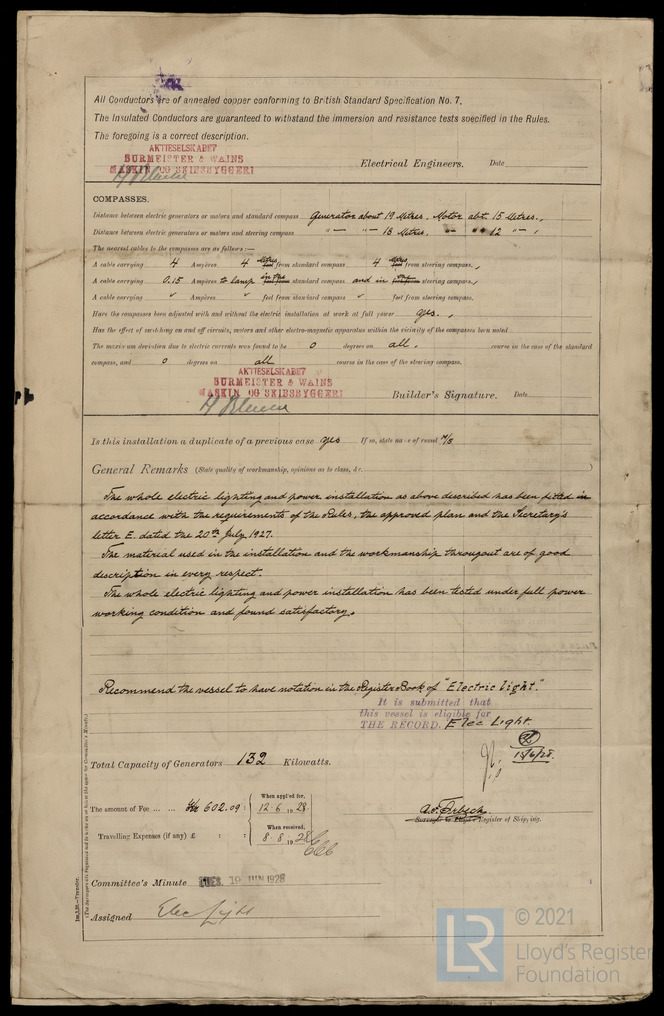 All Conductors are of annealed copper conforming to British Standard Specification No. 7.
The Insulated Conductors are guaranteed to withstand the immersion and resistance tests specified in the Rules.
The foregoing is a correct description.
AKTIESELSKABET
BURMEISTER & WAINS
MASKIN OG SKIBSBYGGERI
Electrical Engineers. Date
COMPASSES.
Distance between electric generators or motors and standard compass Generator about 19 Metres. Motor abt. 15 Metres.
Distance between electric generators or motors and steering compass " — " — 18 Metres, " — " 12 " —
The nearest cables to the compasses are as follows:—
A cable carrying 4 Ampères 4 Metres feet from standard compass 4 Metres feet from steering compass.
A cable carrying 0.15 Ampères to lamp in the feet from standard compass and in the feet from steering compass.
A cable carrying ✓ Ampères ✓ feet from standard compass ✓ feet from steering compass.
Have the compasses been adjusted with and without the electric installation at work at full power yes.
Has the effect of switching on and off circuits, motors and other electro-magnetic apparatus within the vicinity of the compasses been noted
The maximum deviation due to electric currents was found to be 0 degrees on all. course in the case of the standard
compass, and 0 degrees on all course in the case of the steering compass.
AKTIESELSKABET
BURMEISTER & WAINS
MASKIN OG SKIBSBYGGERI
Builder's Signature. Date
Is this installation a duplicate of a previous case yes If so, state name of vessel M/S
General Remarks (State quality of workmanship, opinions as to class, &c.)
The whole electric lighting and power installation as above described has been fitted in
accordance with the requirements of the Rules, the approved plan and the Secretary's
letter E. dated the 20th July 1927.
The material used in the installation and the workmanship througout are of good
description in every respect.
The whole electric lighting and power installation has been tested under full power
working condition and found satisfactory.
Recommend the vessel to have notation in the Register Book of "Electric light."
It is submitted that
this vessel is eligible for
THE RECORD. Elec Light.
15/6/28.
Total Capacity of Generators 132 Kilowatts.
The amount of Fee ... ... Kr 602.09 : When applied for, 12.6.1928
Surveyor to Lloyd's Register of Shipping.
Travelling Expenses (if any) £ : : When received, 8.8.1928
Committee's Minute TUES. 19 JUN 1928
Assigned Elec Light
Im.3.26.—Transfer.
© 2021
LR Lloyd's Register
Foundation